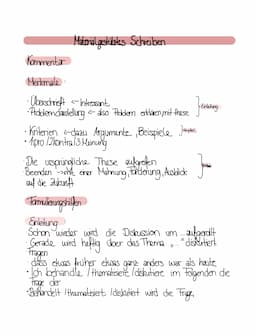 Materialgestütztes Schreiben
Kommentar
Merkmale
- Überschrift <- Interessant
- Problemdarstellung <- also Problem erklären, mit These } Einleitung
- Kriterien <- dazu Argumente, Beispiele } Hauptteil
- 1 pro / 2 Kontra / 3 Meinung
Die ursprüngliche These aufgreifen
Beenden -> mit einer Mahnung, Forderung, Ausblick
auf die Zukunft
Formulierungshilfen
Einleitung
Schon wieder wird die Diskussion um ... aufgerollt
Gerade wird heftig über das Thema „..." diskutiert
Fragen
dass etwas früher etwas ganz anders war als heute
- Ich behandle / thematisiere / diskutiere im Folgenden die
Frage der
- Behandelt / thematisiert / diskutiert wird die Frage,